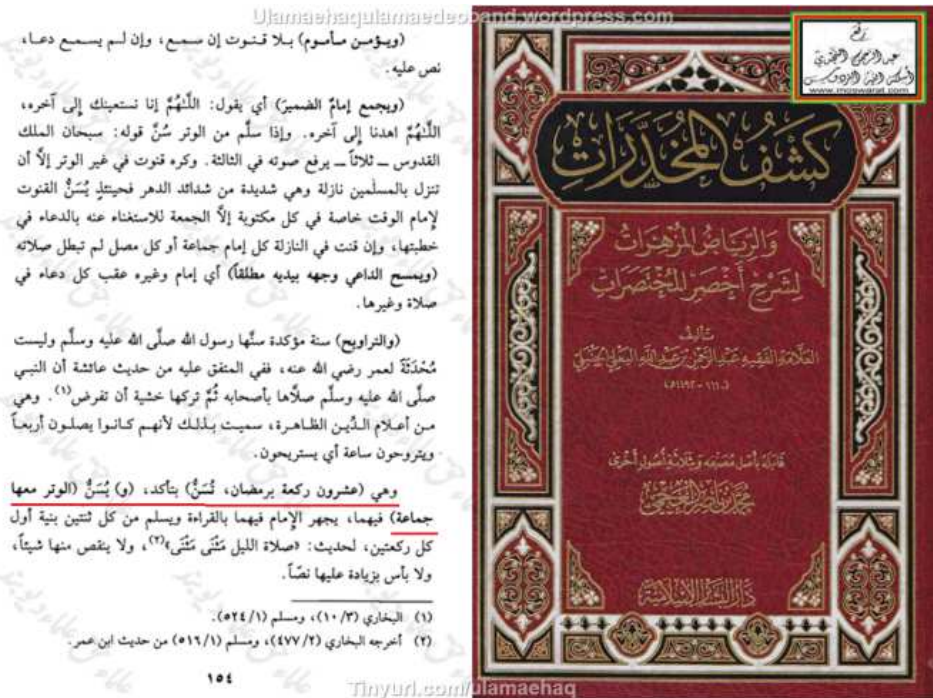 Ulamaehaqulamaedeoband.wordpress.com
(ويـؤمـن مـأمـوم) بـلا قـنـوت إن سـمـع، وإن لـم يسـمـع دعـا،
نص عليه.
(ويجمع إمامٌ الضميرَ) أي يقول: اللَّهُمَّ إنا نستعينك إلى آخره،
اللَّهُمَّ اهدنا إلى آخره. وإذا سلَّم من الوتر سُنَّ قوله: سبحان الملك
القدوس ــ ثلاثاً ــ يرفع صوته في الثالثة. وكره قنوت في غير الوتر إلَّا أن
تنزل بالمسلمين نازلة وهي شديدة من شدائد الدهر فحينئذٍ يُسَنُّ القنوت
لإمام الوقت خاصة في كل مكتوبة إلَّا الجمعة للاستغناء عنه بالدعاء في
خطبتها، وإن قنت في النازلة كل إمام جماعة أو كل مصل لم تبطل صلاته
(ويمسح الداعي وجهه بيديه مطلقاً) أي إمام وغيره عقب كل دعاء في
صلاة وغيرها.
(والتراويح) سنة مؤكدة سنَّها رسول الله صلَّى الله عليه وسلَّم وليست
مُحْدَثَةً لعمر رضي الله عنه، ففي المتفق عليه من حديث عائشة أن النبـي
صلَّى الله عليه وسلَّم صلاَّها بأصحابه ثُمَّ تركها خشية أن تفرض(١). وهي
من أعلام الدِّين الظاهرة، سميت بذلك لأنهم كانوا يصلون أربعاً
ويتروحون ساعة أي يستريحون.
وهي (عشرون ركعة برمضان، تُسَنُّ) بتأكد، (و) يُسَنُّ (الوتر معها
جماعة) فيهما، يجهر الإمام فيهما بالقراءة ويسلم من كل ثنتين بنية أول
كل ركعتين، لحديث: «صلاة الليل مَثْنَى مَثْنَى»(٢)، ولا ينقص منها شيئاً،
ولا بأس بزيادة عليها نصًّا.
(١) البخاري (٣/١٠)، ومسلم (١/٥٢٤).
(٢) أخرجه البخاري (٢/٤٧٧)، ومسلم (١/٥١٦) من حديث ابن عمر.
١٥٤
رفع
عبد الرحمن النجدي
أسكنه الله الفردوس
www.moswarat.com
كشف المخدرات
والرياض المزهرات
لشرح أخصر المختصرات
تأليف
العلامة الفقيه عبد الرحمن بن عبد الله البعلي الحنبلي
(١١١٠ - ١١٩٢هـ)
قابله بأصل مصنفه وثلاثة أصول أخرى
محمد بن ناصر العجمي
دار البشائر الإسلامية
Tinyurl.com/ulamaehaq